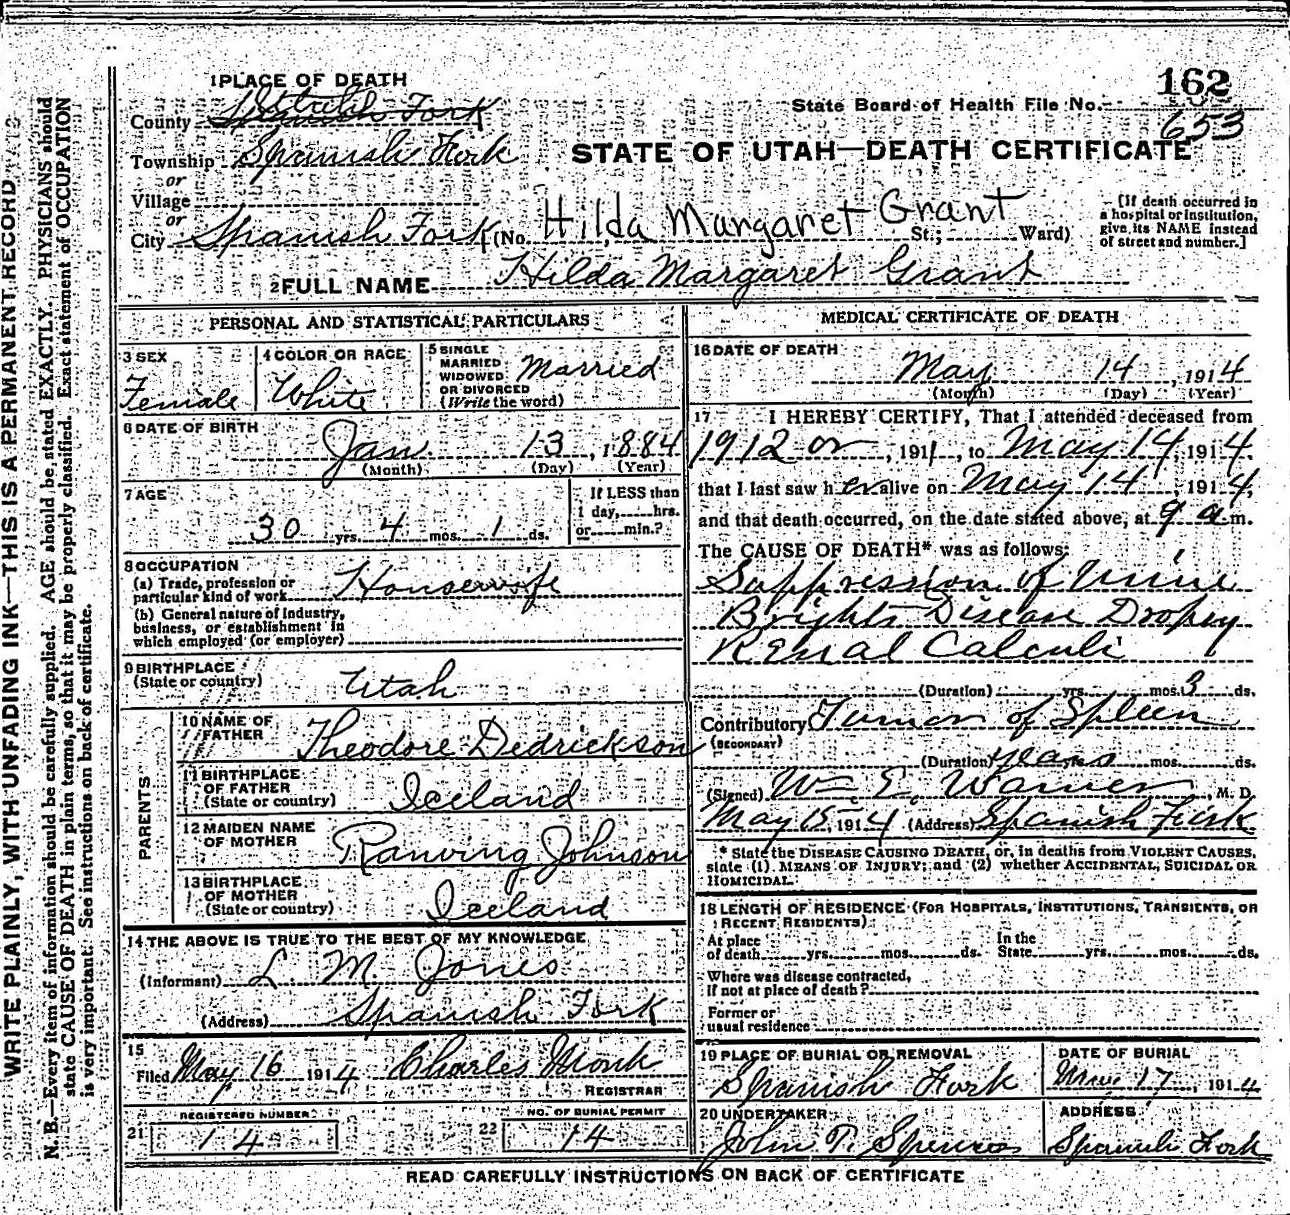 162
State Board of Health File No. 653
1 PLACE OF DEATH
County Fork
Township Spanish Fork
or
Village
or
City Spanish Fork (No. Hilda Margaret Grant St.; Ward)
STATE OF UTAH—DEATH CERTIFICATE
[If death occurred in
a hospital or institution,
give its NAME instead
of street and number.]
2 FULL NAME Hilda Margaret Grant
PERSONAL AND STATISTICAL PARTICULARS
3 SEX
Female
4 COLOR OR RACE
White
5 SINGLE
MARRIED
WIDOWED
OR DIVORCED
(Write the word)
Married
6 DATE OF BIRTH
Jan. 13, 1884
(Month) (Day) (Year)
7 AGE
30 yrs. 4 mos. 1 ds.
If LESS than
1 day, hrs.
or min.?
8 OCCUPATION
(a) Trade, profession or
particular kind of work Housewife
(b) General nature of industry,
business, or establishment in
which employed (or employer)
9 BIRTHPLACE
(State or country) Utah
PARENTS
10 NAME OF
FATHER Theodore Dedrickson
11 BIRTHPLACE
OF FATHER
(State or country) Iceland
12 MAIDEN NAME
OF MOTHER Ranving Johnson
13 BIRTHPLACE
OF MOTHER
(State or country) Iceland
14 THE ABOVE IS TRUE TO THE BEST OF MY KNOWLEDGE
(Informant) L M Jones
(Address) Spanish Fork
15
Filed May 16 1914 Charles Monk
REGISTRAR
REGISTERED NUMBER
21 14
NO. OF BURIAL PERMIT
22 14
MEDICAL CERTIFICATE OF DEATH
16 DATE OF DEATH
May 14, 1914
(Month) (Day) (Year)
17 I HEREBY CERTIFY, That I attended deceased from
1912 or, 1911, to May 14, 1914.
that I last saw her alive on May 14, 1914,
and that death occurred, on the date stated above, at 9 a m.
The CAUSE OF DEATH* was as follows:
Suppression of Urine
Brights Disease Dropsy
Renal Calculi
(Duration) yrs. mos. 3 ds.
Contributory Tumor of Spleen
(SECONDARY)
(Duration) years yrs. mos. ds.
(Signed) Wm E. Warner, M. D.
May 15, 1914 (Address) Spanish Fork
* State the DISEASE CAUSING DEATH, or, in deaths from VIOLENT CAUSES,
state (1) MEANS OF INJURY; and (2) whether ACCIDENTAL, SUICIDAL OR
HOMICIDAL.
18 LENGTH OF RESIDENCE (FOR HOSPITALS, INSTITUTIONS, TRANSIENTS, OR
RECENT RESIDENTS)
At place
of death yrs. mos. ds.
In the
State yrs. mos. ds.
Where was disease contracted,
if not at place of death?
Former or
usual residence
19 PLACE OF BURIAL OR REMOVAL
Spanish Fork
DATE OF BURIAL
17, 1914
20 UNDERTAKER
John
ADDRESS
Spanish Fork
READ CAREFULLY INSTRUCTIONS ON BACK OF CERTIFICATE
WRITE PLAINLY, WITH UNFADING INK—THIS IS A PERMANENT RECORD
N. B.—Every item of information should be carefully supplied. AGE should be stated EXACTLY. PHYSICIANS should
state CAUSE OF DEATH in plain terms, so that it may be properly classified. Exact statement of OCCUPATION
is very important. See instructions on back of certificate.